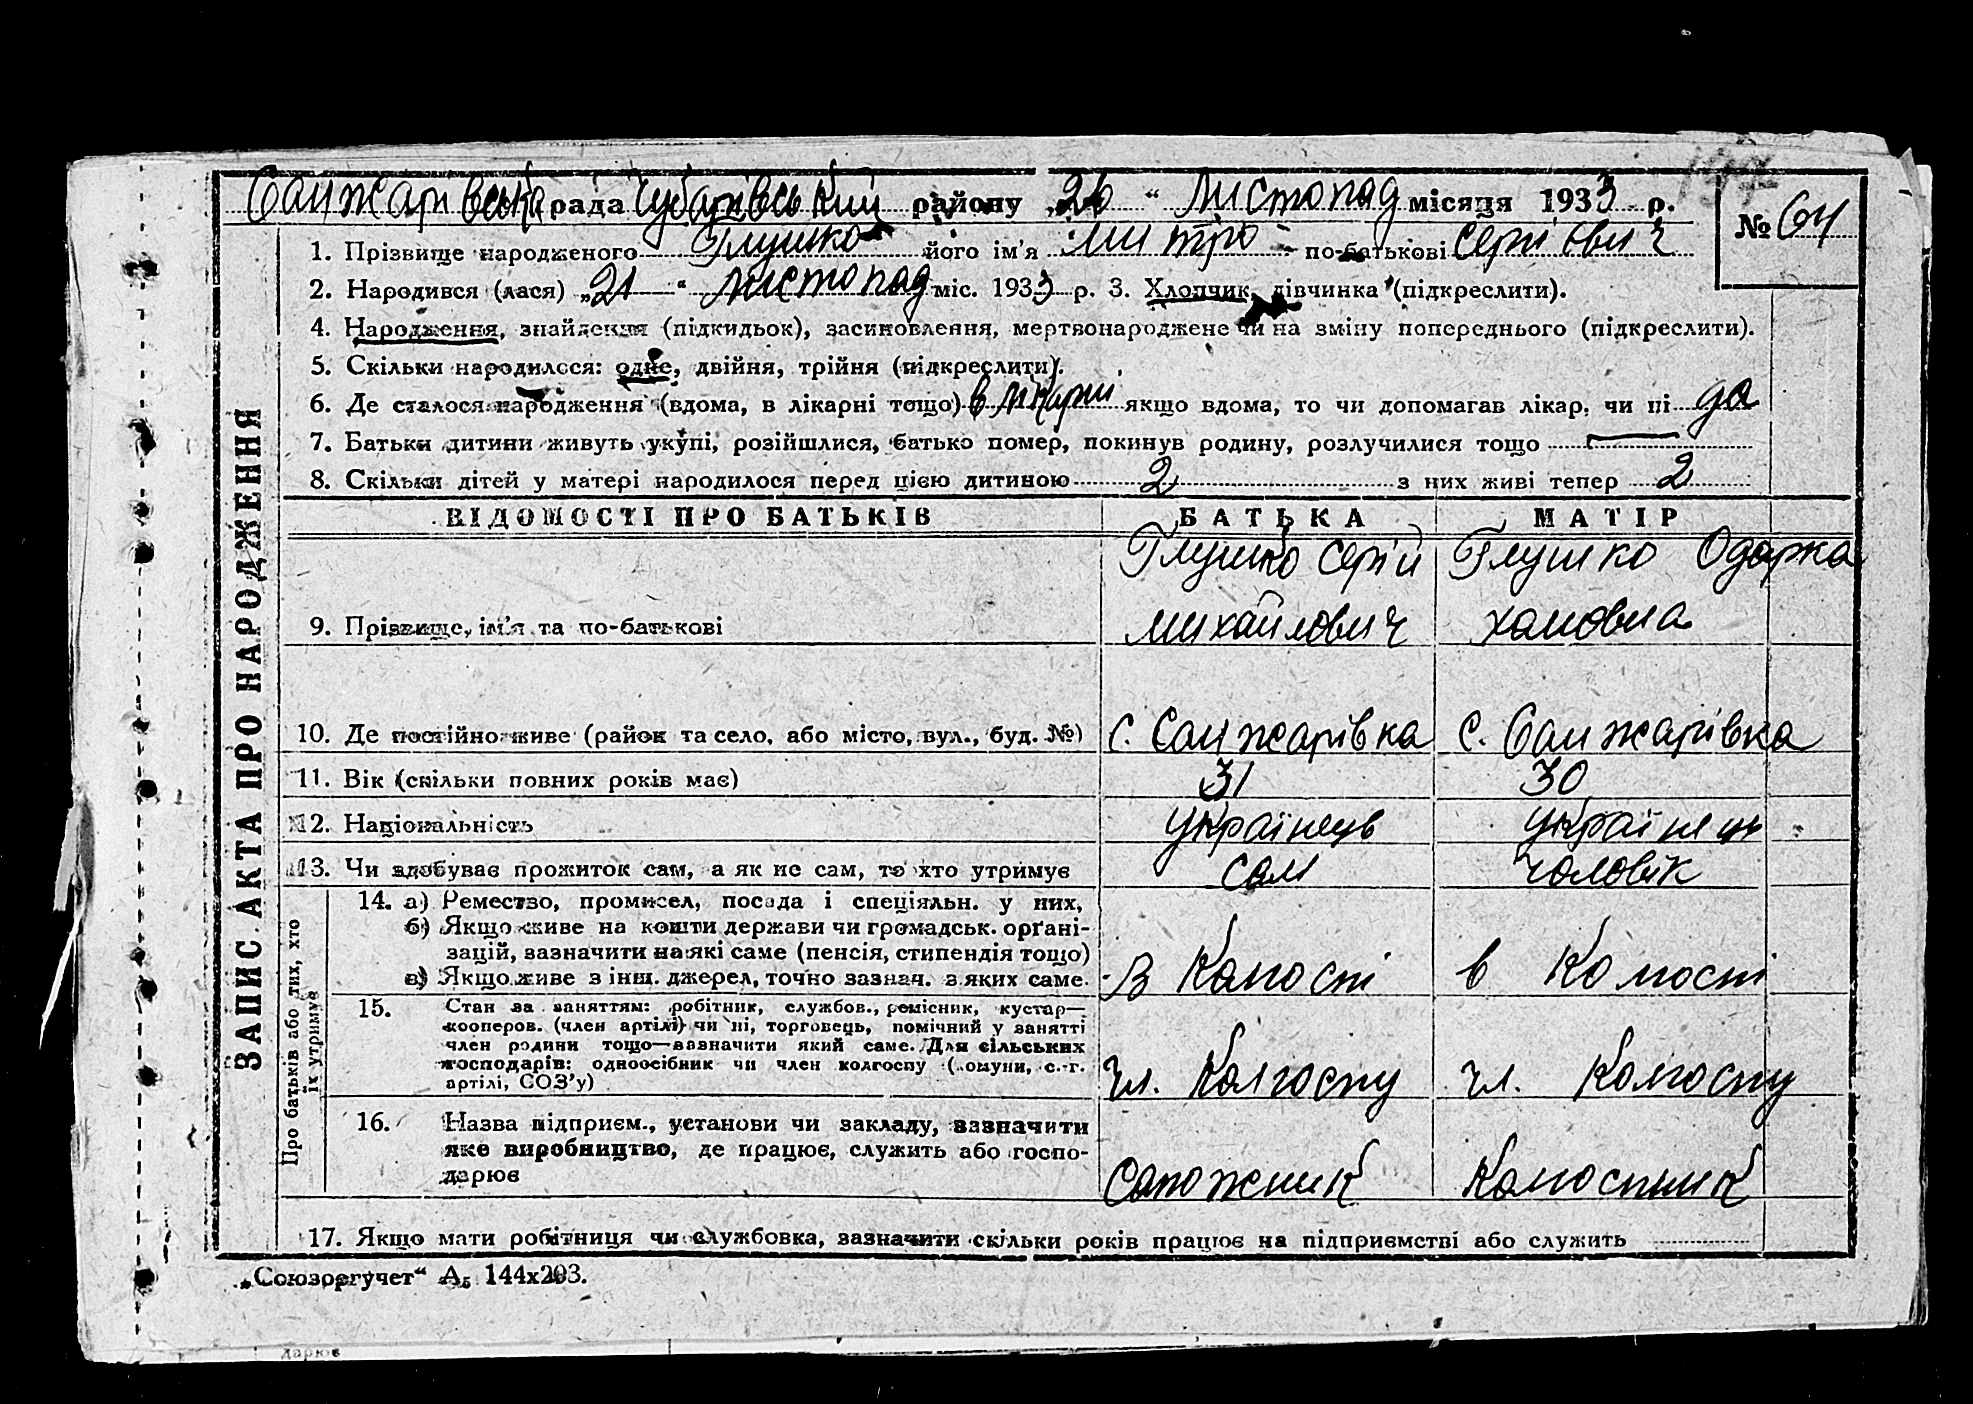 Санжарівська рада Чубарівський району „26“ Листопад місяця 1933 р.
№ 64
1. Прізвище народженого Глушко його ім'я Митро по-батькові Сергієвич
2. Народився (лася) „21“ Листопад міс. 1933 р. 3. Хлопчик, дівчинка (підкреслити).
4. Народження, знайдення (підкидьок), засиновлення, мертвонароджене чи на зміну попереднього (підкреслити).
5. Скільки народилося: одне, двійня, трійня (підкреслити).
6. Де сталося народження (вдома, в лікарні тощо) в лікарни якщо вдома, то чи допомагав лікар, чи ні да
7. Батьки дитини живуть укупі, розійшлися, батько помер, покинув родину, розлучилися тощо —
8. Скільки дітей у матері народилося перед цією дитиною 2 з них живі тепер 2
ЗАПИС АКТА ПРО НАРОДЖЕННЯ
ВІДОМОСТІ ПРО БАТЬКІВ БАТЬКА МАТІР
Глушко Сергій Глушко Одарка
9. Прізвище, ім'я та по-батькові Михайлович Хомовна
10. Де постійно живе (район та село, або місто, вул., буд. №) с. Санжарівка с. Санжарівка
11. Вік (скільки повних років має) 31 30
12. Національність українець українець
13. Чи здобуває прожиток сам, а як не сам, то хто утримує сам чоловік
Про батьків або тих, хто
їх утримує
14. а) Ремество, промисел, посада і спеціяльн. у них,
б) Якщо живе на кошти держави чи громадськ. орґані-
зацій, зазначити на які саме (пенсія, стипендія тощо)
в) Якщо живе з інш. джерел, точно зазнач. з яких саме. В Колгоспі в Колгоспі
15. Стан за заняттям: робітник, службов., ремісник, кустар—
кооперов. (член артілі) чи ні, торговець, помічний у занятті
член родини тощо—зазначити який саме. Для сільських
господарів: одноосібник чи член колгоспу (комуни, с.-г.
артілі, СОЗ'у) чл. Колгоспу чл. Колгоспу
16. Назва підприєм., установи чи закладу, зазначити
яке виробництво, де працює, служить або госпо-
дарює Сапожник Колгоспник
17. Якщо мати робітниця чи службовка, зазначити скільки років працює на підприємстві або служить
„Союзоргучет“ А₅ 144х203.
дарює